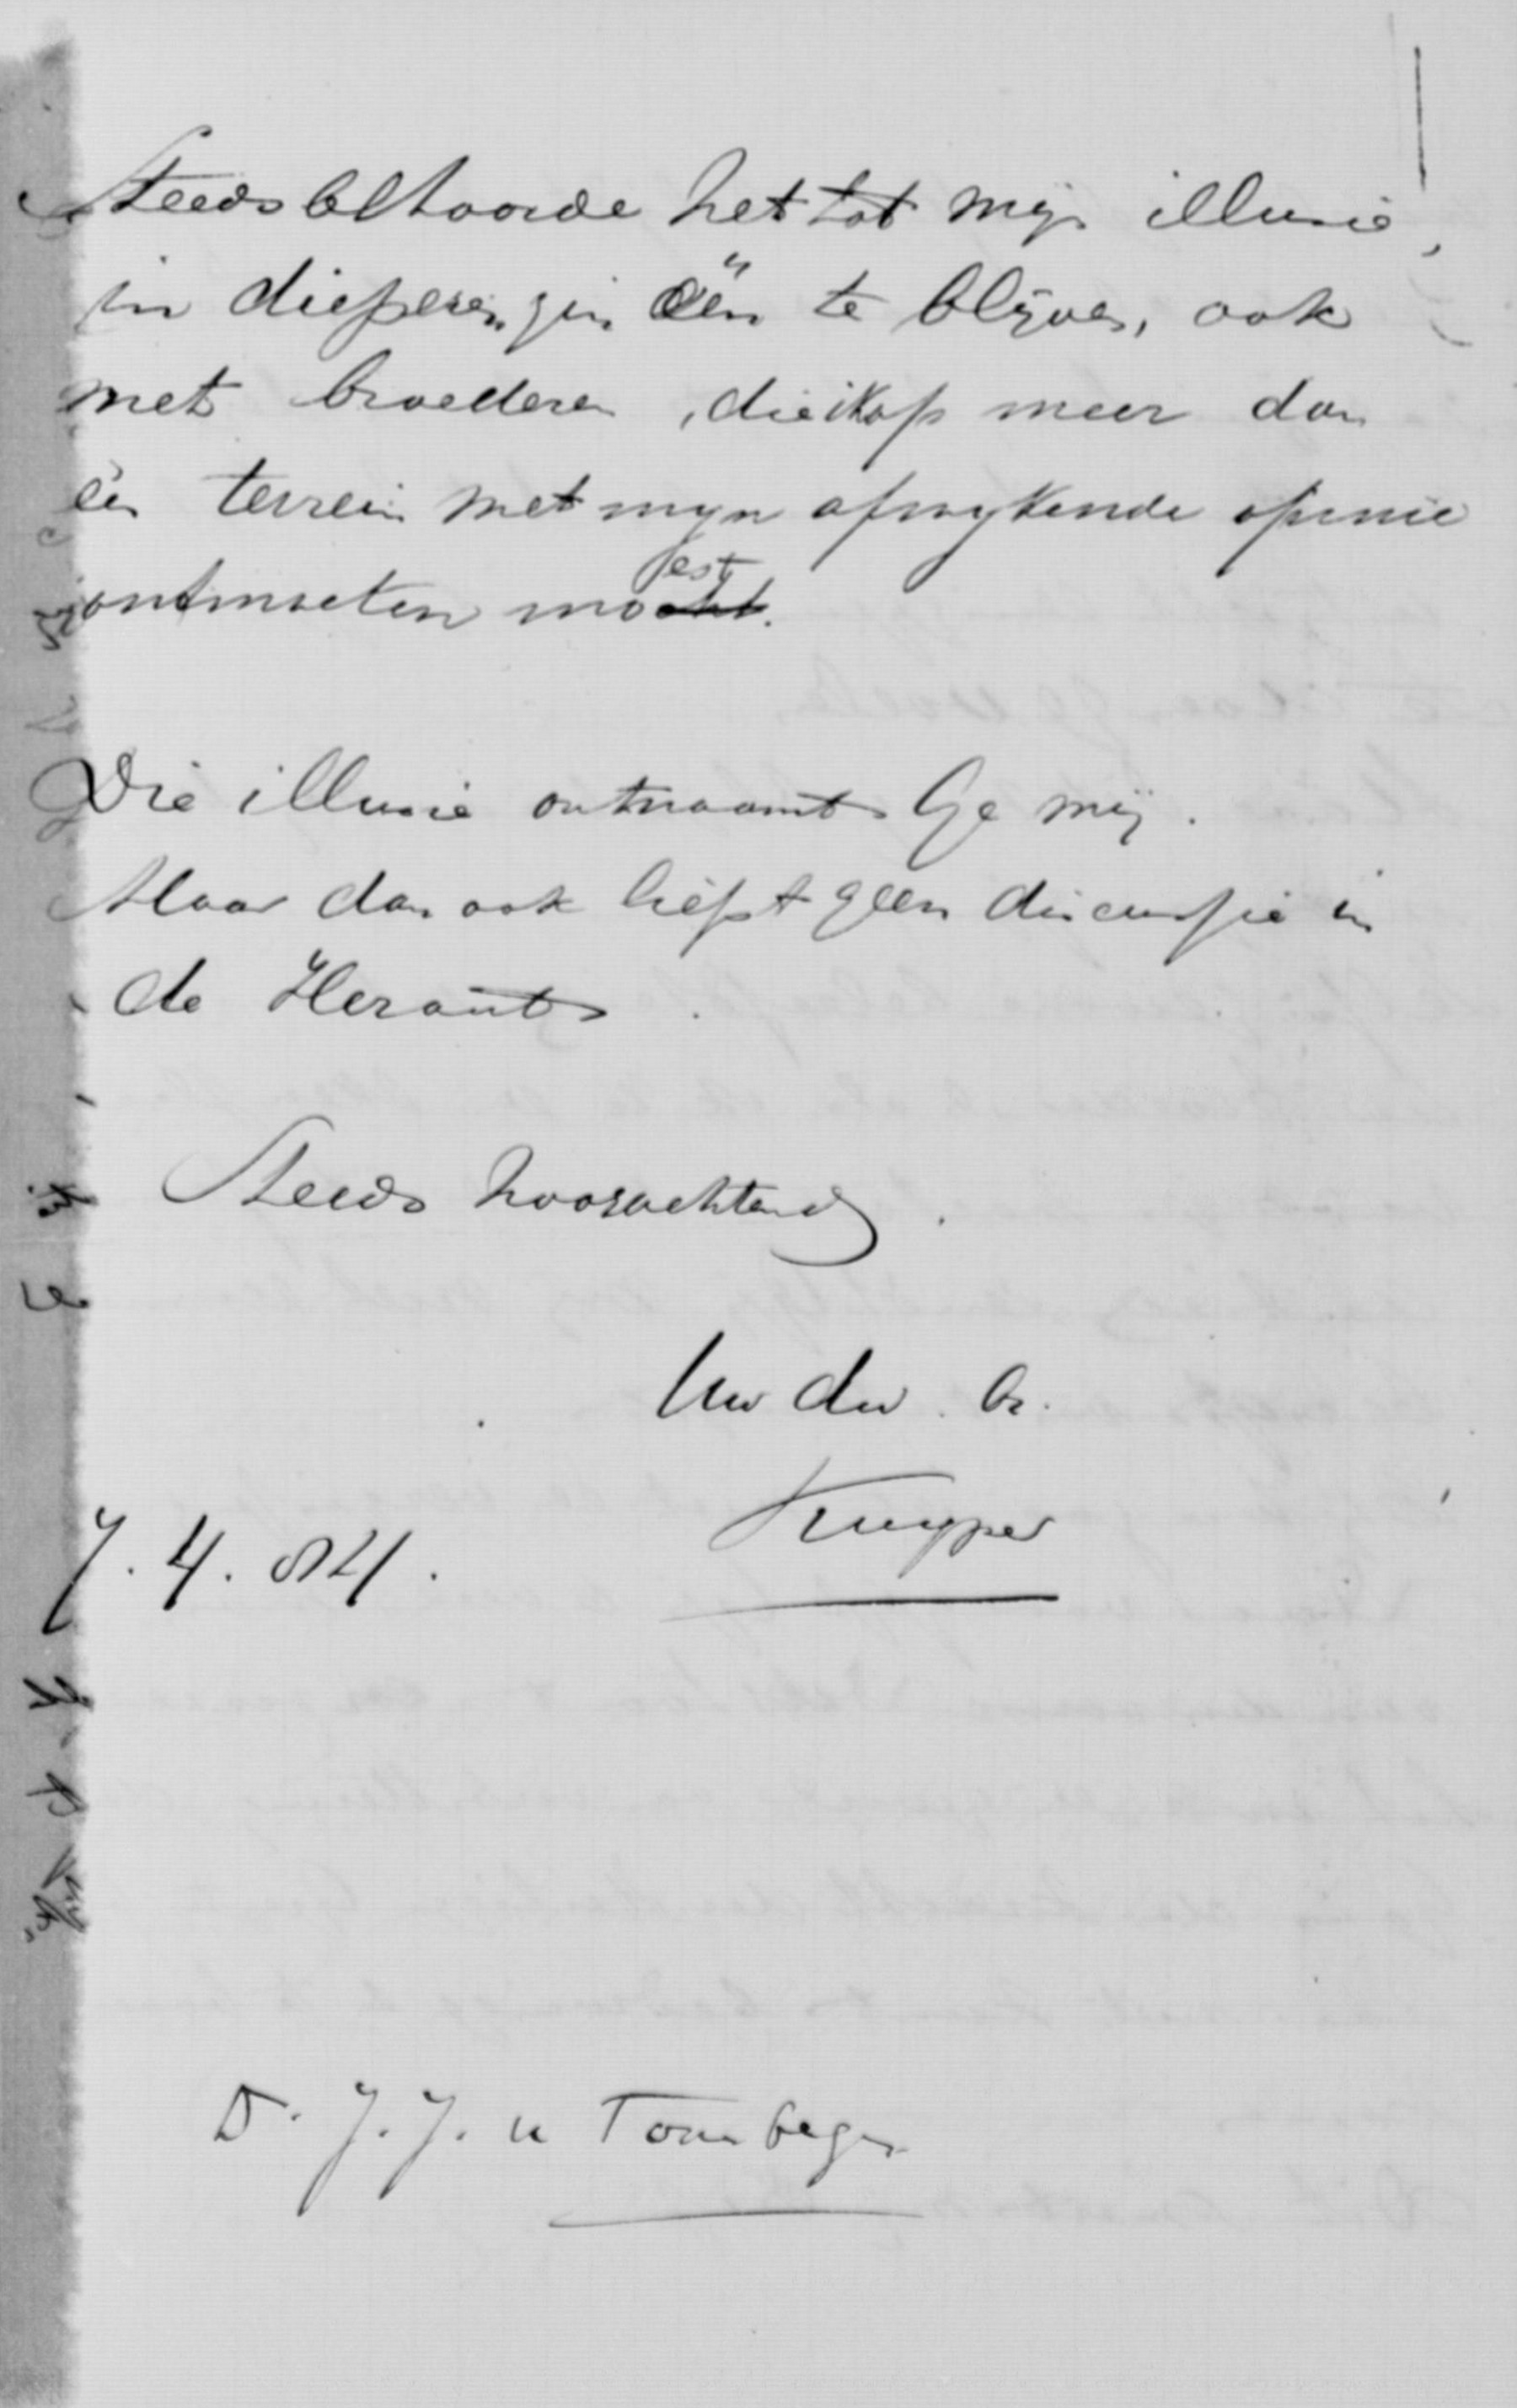 Steeds behoorde het tot mijn illusie,
in dieperen zin één te blijven, ook
met broederen, die ik op meer dan
één terrein met mijn afwijkende opinie
ontmoeten moest.
Die illusie ontnaamt Ge mij.
Maar dan ook liefst geen discussie in
de Heraut.
Steeds hoogachtend
Uw dw. br.
Kuyper
7.4.84.
Dr. J. J. v Toorenbergen